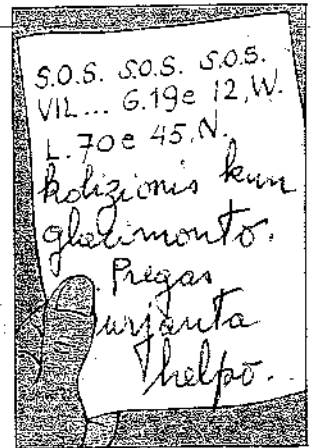 S.O.S. S.O.S. S.O.S.
VIL... G.19e 12,W.
L.70e 45,N.
kolizionis kun
glacimonto.
Pregas
urjanta
helpo.